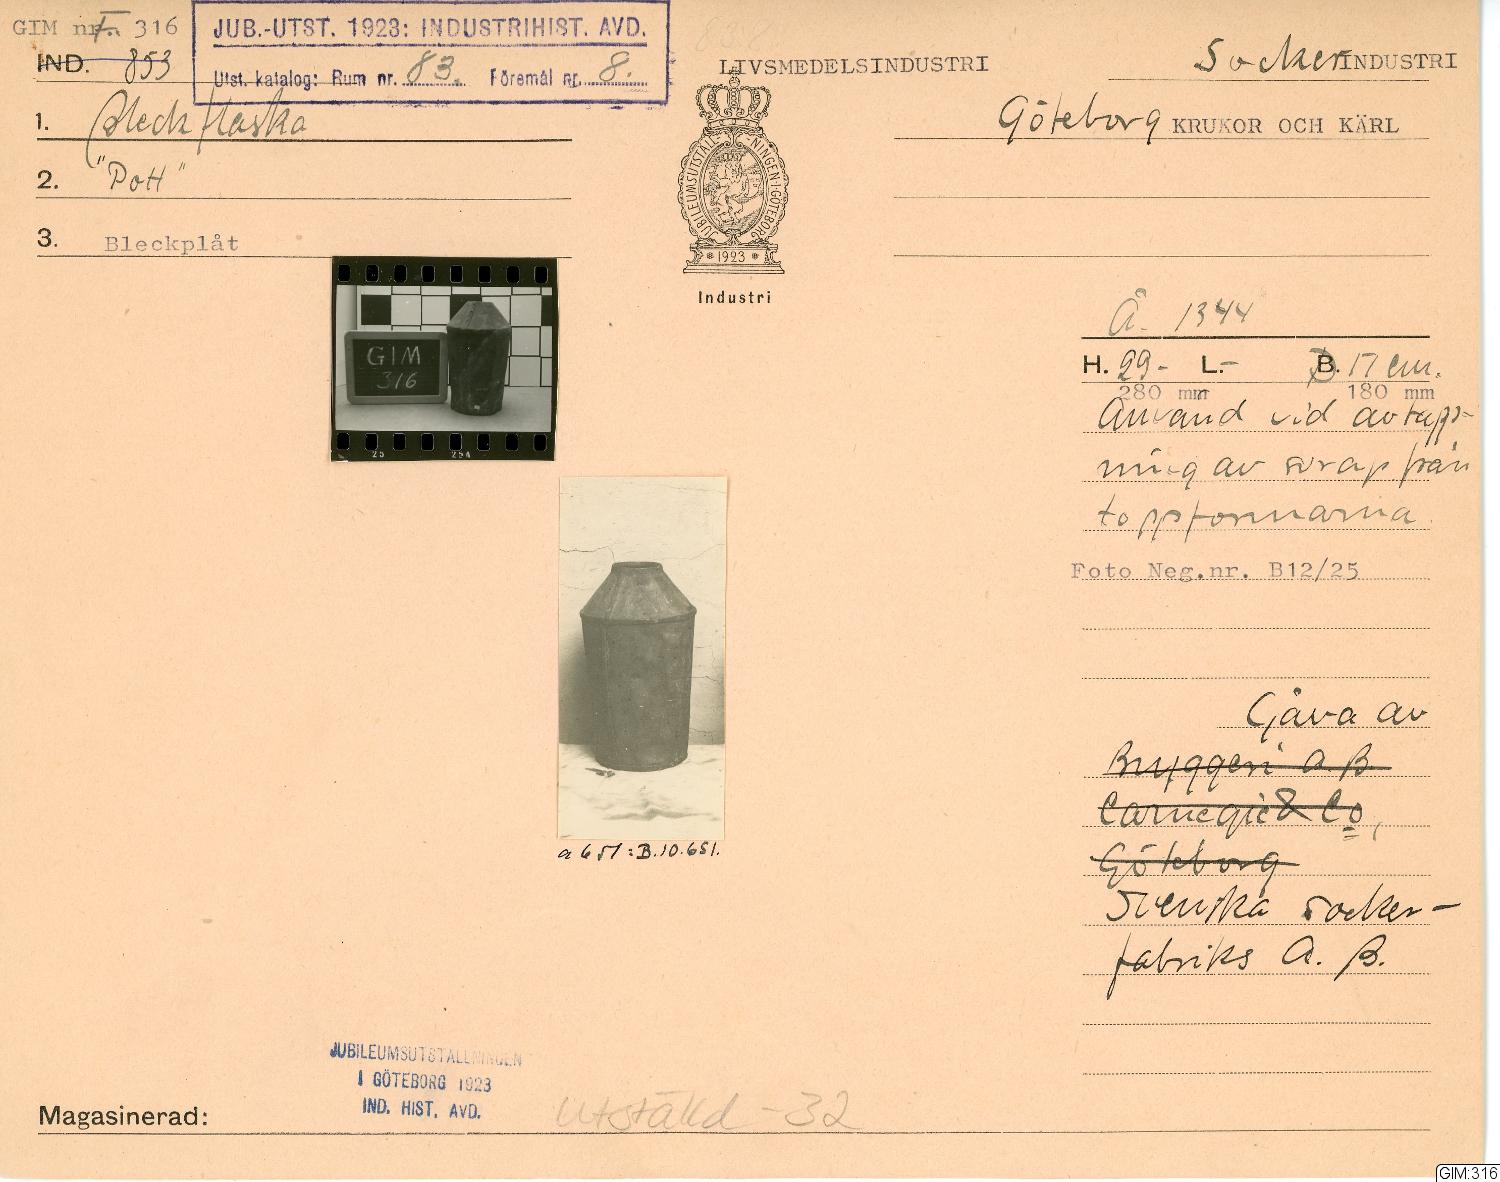 GIM nr. 316
IND. 853
JUB.-UTST. 1923: INDUSTRIHIST. AVD.
Utst. katalog: Rum nr. 83. Föremål nr. 8.
LIVSMEDELSINDUSTRI
SockerINDUSTRI
1. Bleckflaska
Göteborg KRUKOR OCH KÄRL
2. "Pott"
3. Bleckplåt
JUBILEUMSUTSTÄLLNINGEN I GÖTEBORG
1923
Industri
GIM
316
25 25A
Å. 1344
H. 29- L.- B. 17 cm.
280 mm 180 mm
Använd vid avtapp-
ning av sirap från
toppformarna
Foto Neg.nr. B12/25
a 651:B.10.651.
Gåva av
Bryggeri A.B.
Carnegie & Co,
Göteborg
Svenska socker-
fabriks A.B.
JUBILEUMSUTSTÄLLNINGEN
I GÖTEBORG 1923
IND. HIST. AVD.
Magasinerad: Utställd -32
GIM:316